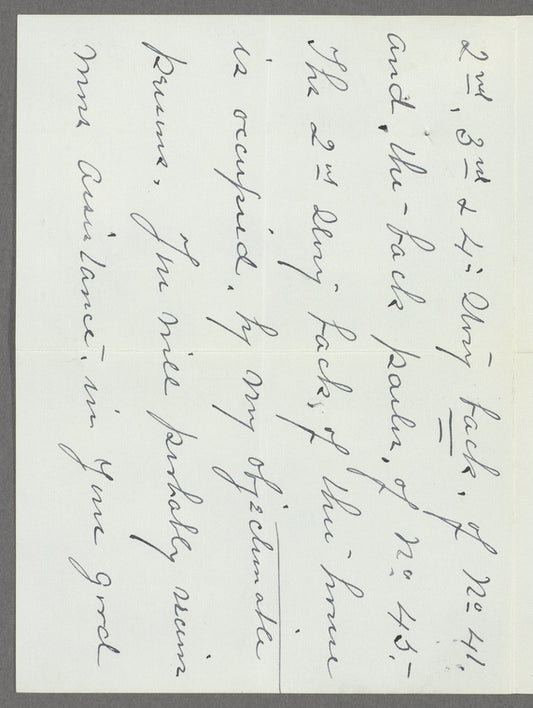 2nd, 3rd & 4" Story back, of No 41.
and, the back parlor, of No 45.
The 2nd Story back, of this house
is occupied, by my objectionable
persons. You will probably receive
more assistance, in your good